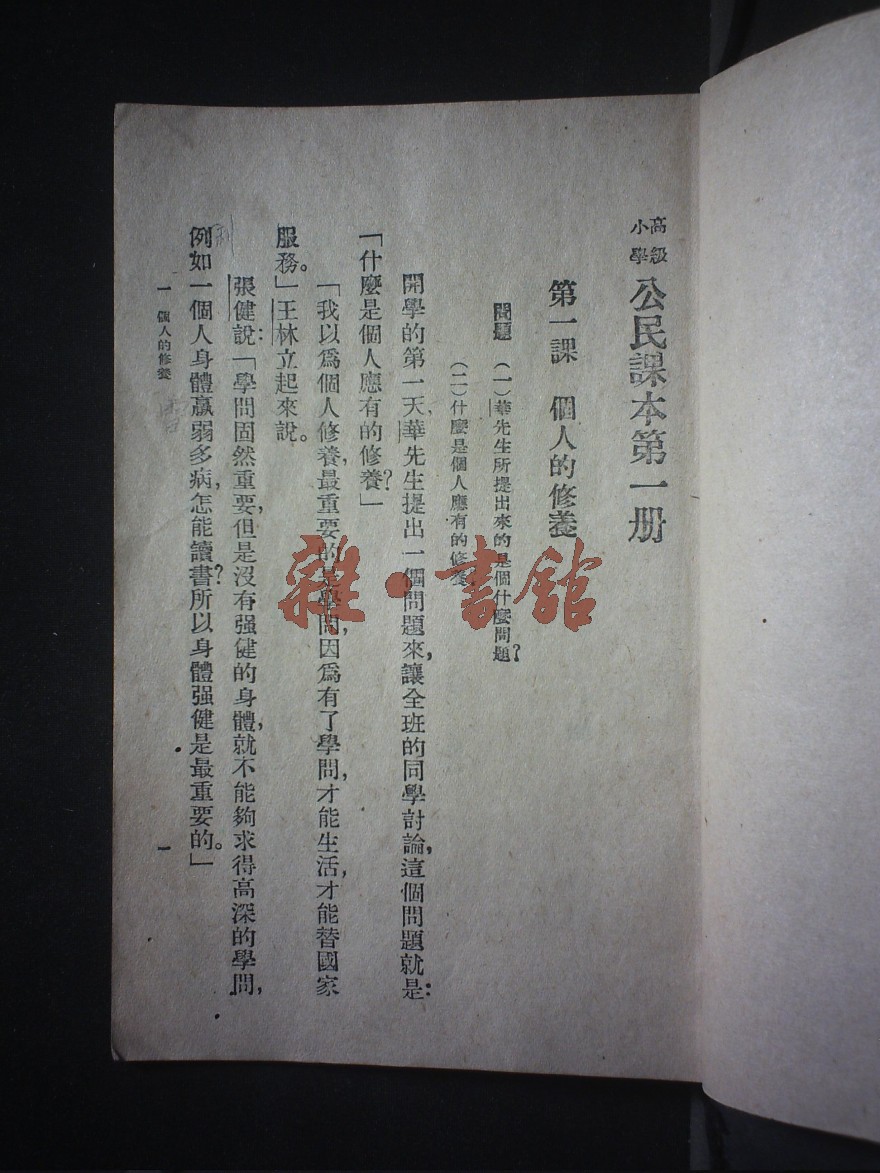 高級小學 公民課本第一册
第一課 個人的修養
問題 (一)華先生所提出來的是個什麼問題?
(二)什麼是個人應有的修養?
開學的第一天,華先生提出一個問題來,讓全班的同學討論,這個問題就是:
「什麼是個人應有的修養?」
「我以爲個人修養,最重要的是學問,因爲有了學問,才能生活,才能替國家
服務。」王林立起來說。
張健說:「學問固然重要,但是沒有强健的身體,就不能夠求得高深的學問,
例如一個人身體羸弱多病,怎能讀書?所以身體强健是最重要的。」
一 個人的修養
一
雜·書館